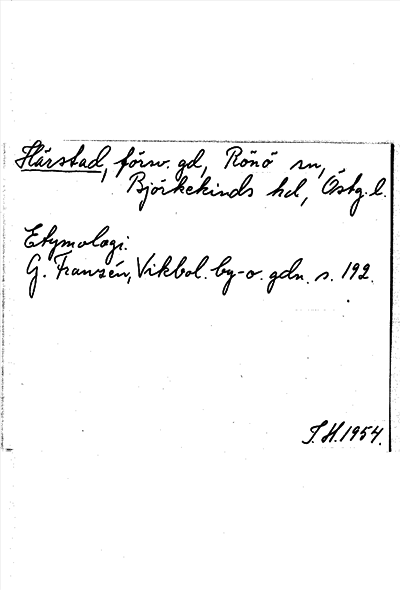 Härstad, försv. gd, Rönö sn,
Björkekinds hd, Östg. l.
Etymologi.
G. Franzén, Vikbol. by- o. gdn. s. 192.
S.H. 1954.